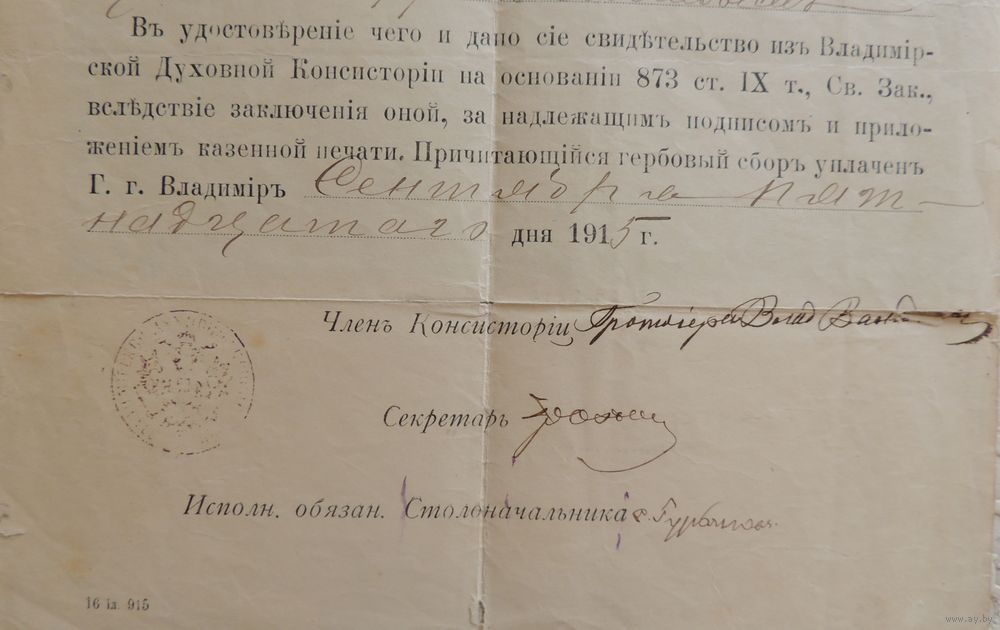 Въ удостовѣреніе чего и дано сіе свидѣтельство изъ Владимір-
ской Духовной Консисторіи на основаніи 873 ст. IX т., Св. Зак.,
вслѣдствіе заключенія оной, за надлежащимъ подписомъ и прило-
женіемъ казенной печати. Причитающійся гербовый сборъ уплаченъ
Г. г. Владиміръ Сентября пят-
надцатаго дня 1915 г.
Членъ Консисторіи Протоіерей Влад
Секретарь
Исполн. обязан. Столоначальника
16 ія. 915
www.ay.by